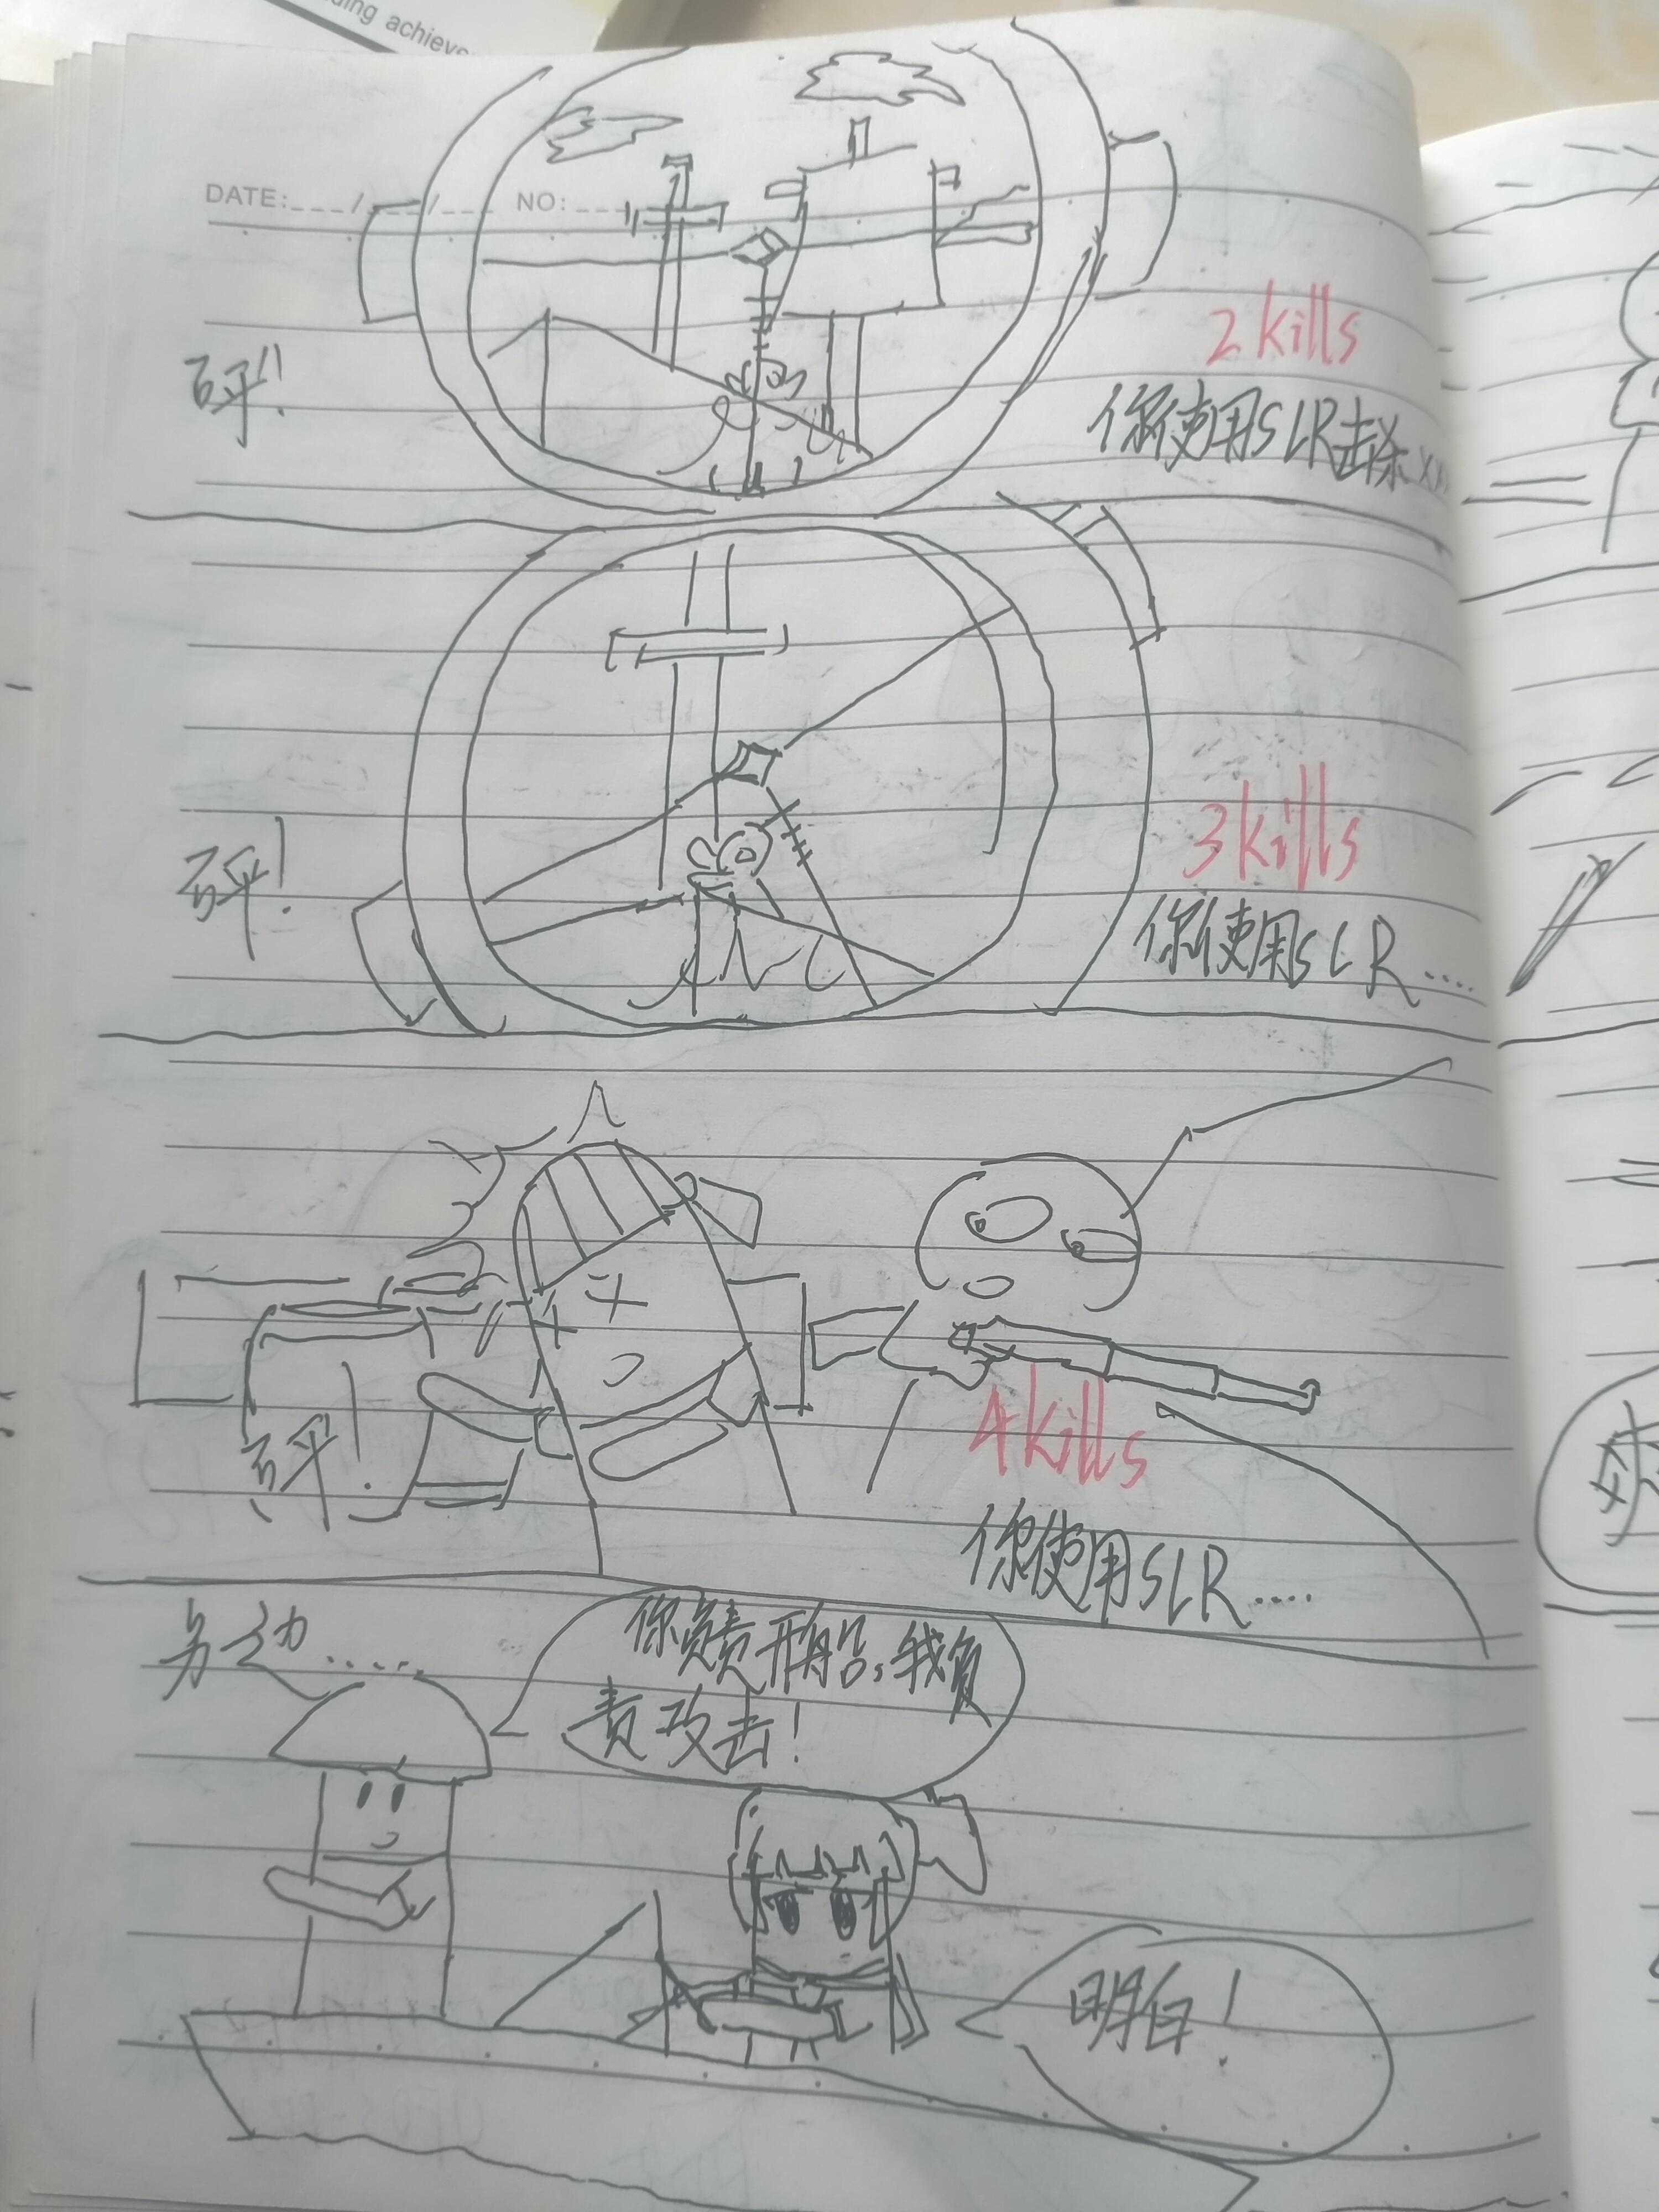 ding achieve
DATE:___/___/___ NO:___
2 kills
砰!!
你使用SLR击杀xx
3 kills
砰!
你使用SLR....
4 kills
砰!
你使用SLR....
另一边.....
你负责开船,我负
责攻击!
明白!